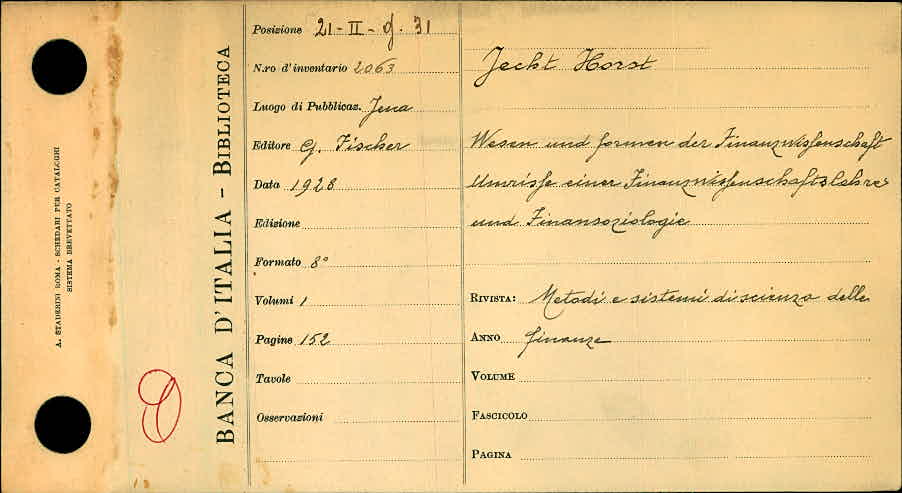 A. STADERINI ROMA - SCHEDARI PER CATALOGHI
SISTEMA BREVETTATO
BANCA D'ITALIA - BIBLIOTECA
Posizione 21-II-g. 31
N.ro d'inventario 2063
Luogo di Pubblicaz. Jena
Editore G. Fischer
Data 1928
Edizione
Formato 8°
Volumi 1
Pagine 152
Tavole
Osservazioni
Jecht Horst
Wesen und formen der Finanzwissenschaft
Umrisse einer Finanzwissenschaftslehre
und Finansoziologie
RIVISTA: Metodi e sistemi di scienza delle
ANNO finanze
VOLUME
FASCICOLO
PAGINA